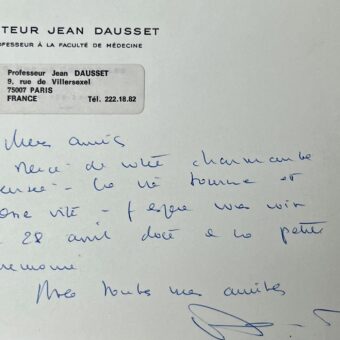 TEUR JEAN DAUSSET
OFESSEUR À LA FACULTÉ DE MÉDECINE
Professeur Jean DAUSSET
9, rue de Villersexel
75007 PARIS
FRANCE Tél. 222.18.82
Mes amis
Merci de votre charmante
La vie tourne et
vite - J'espère vous voir
28 avril
Avec toutes mes amitiés